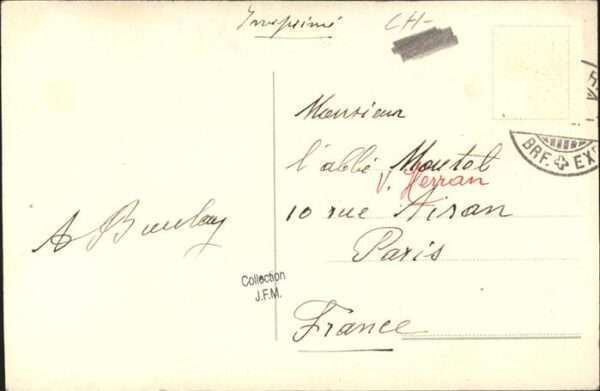 Imprimé
CH-
Monsieur
l'abbé Moutot
V. Herran
10 rue Airan
Paris
France
A Boulay
Collection
J.F.M.
BRF. EXP